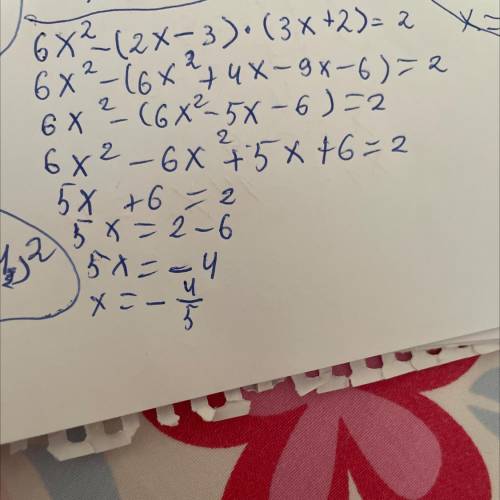 6x² - (2x - 3) · (3x + 2) = 2
x =
6x² - (6x² + 4x - 9x - 6) = 2
6x² - (6x² - 5x - 6) = 2
6x² - 6x² + 5x + 6 = 2
5x + 6 = 2
5x = 2 - 6
5x = - 4
x = - 4/5